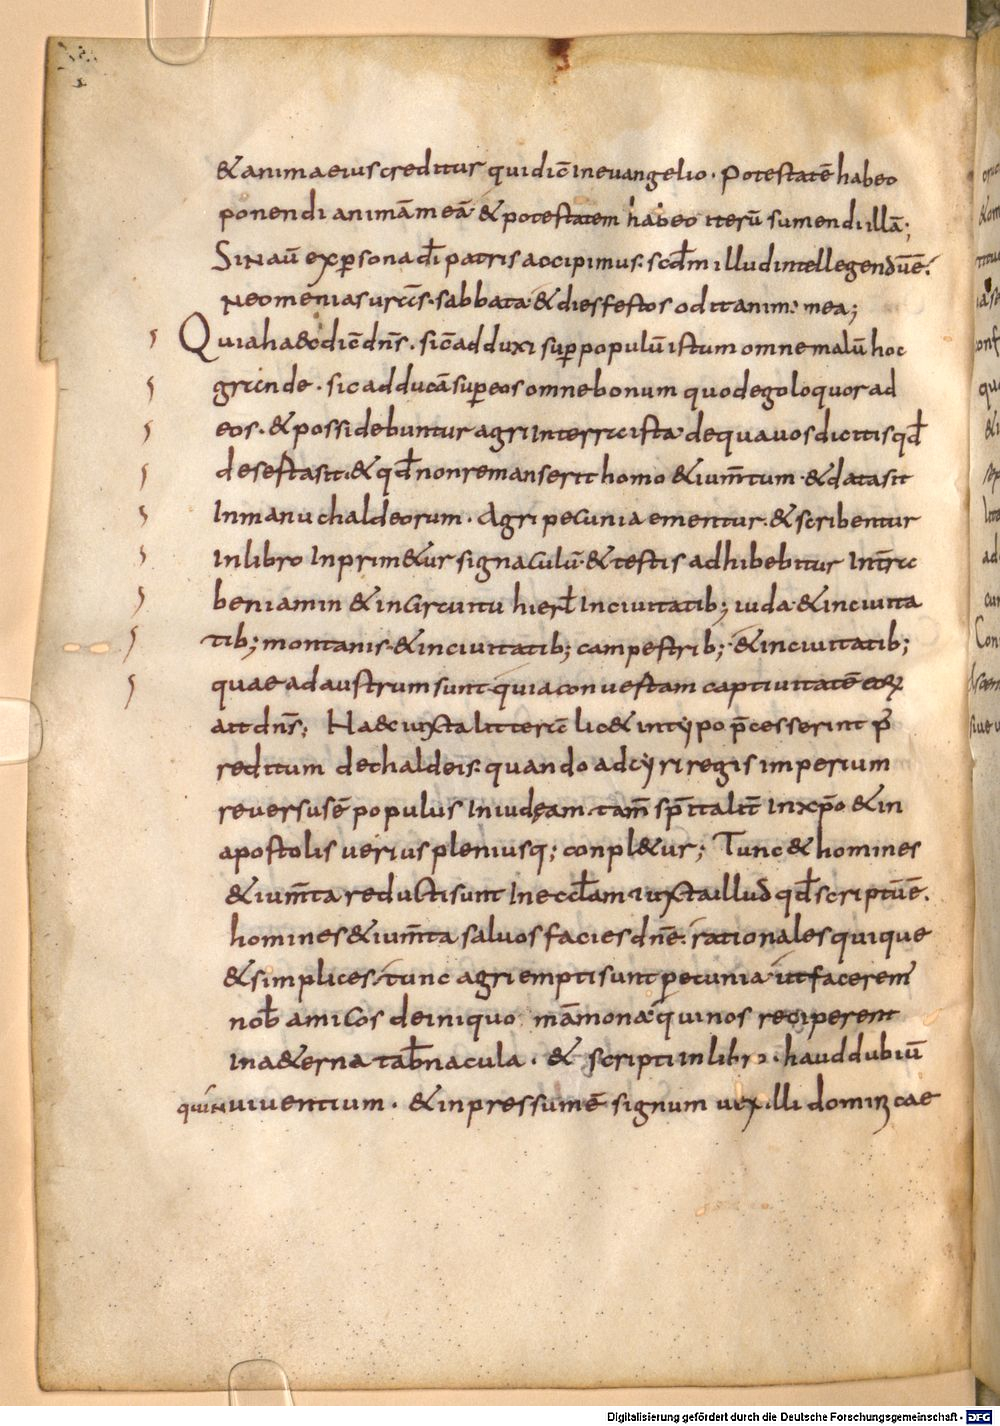 & anima eius creditur qui dic̄ in evangelio · Potestatē habeo
ponendi animā meā & potestatem habeo iterū sumendi illā;
Sin aū ex p̱sona dī patris accipimus · scd̄m illud intellegendūē·
Neomenias urās · sabbata & dies festos odit anima mea;
Quia haec dic̄ dn̄s · sic̄ adduxi sup̱ populū istum omne malū hoc
grande · sic adducā sup̱ eos omne bonum quod ego loquor ad
eos · & possidebuntur agri in terra ista de qua vos dicitis qd̄
deserta sit & qd̄ non remanserit homo & ium̄tum · & data sit
in manu chaldeorum · Agri pecunia ementur · & scribentur
in libro Inprim&ur signaculū · & testis adhibebitur In tr̄a
beniamin & in circuitu hierl̄ In civitatib; iuda & in civita
tib; montanis & in civitatib; campestrib; & in civitatib;
quae ad austrum sunt quia convertam captivitatē eoꝝ
ait dn̄s; Haec iuxta litterā lic& in typo p̄cesserint p̄
reditum de chaldeis · quando ad cyri regis imperium
reversusē populus In iudęam · tam̄ sp̄italit̄ In xp̄o & in
apostolis verius pleniusq; conpl&ur; Tunc & homines
& ium̄ta reducti sunt In eccl̄am · iuxta illud qd̄ scriptūē·
homines & ium̄ta salvos facies dn̄e · rationales quique
& simplices · tunc agri empti sunt pecunia · ut facerem
nob̄ amicos de iniquo māmona · qui nos reciperent
in a&erna tab̄nacula · & scripti in libro · haud dubiū
quin viventium · & inpressumē signum vexilli dominicae
Digitalisierung gefördert durch die Deutsche Forschungsgemeinschaft - DFG